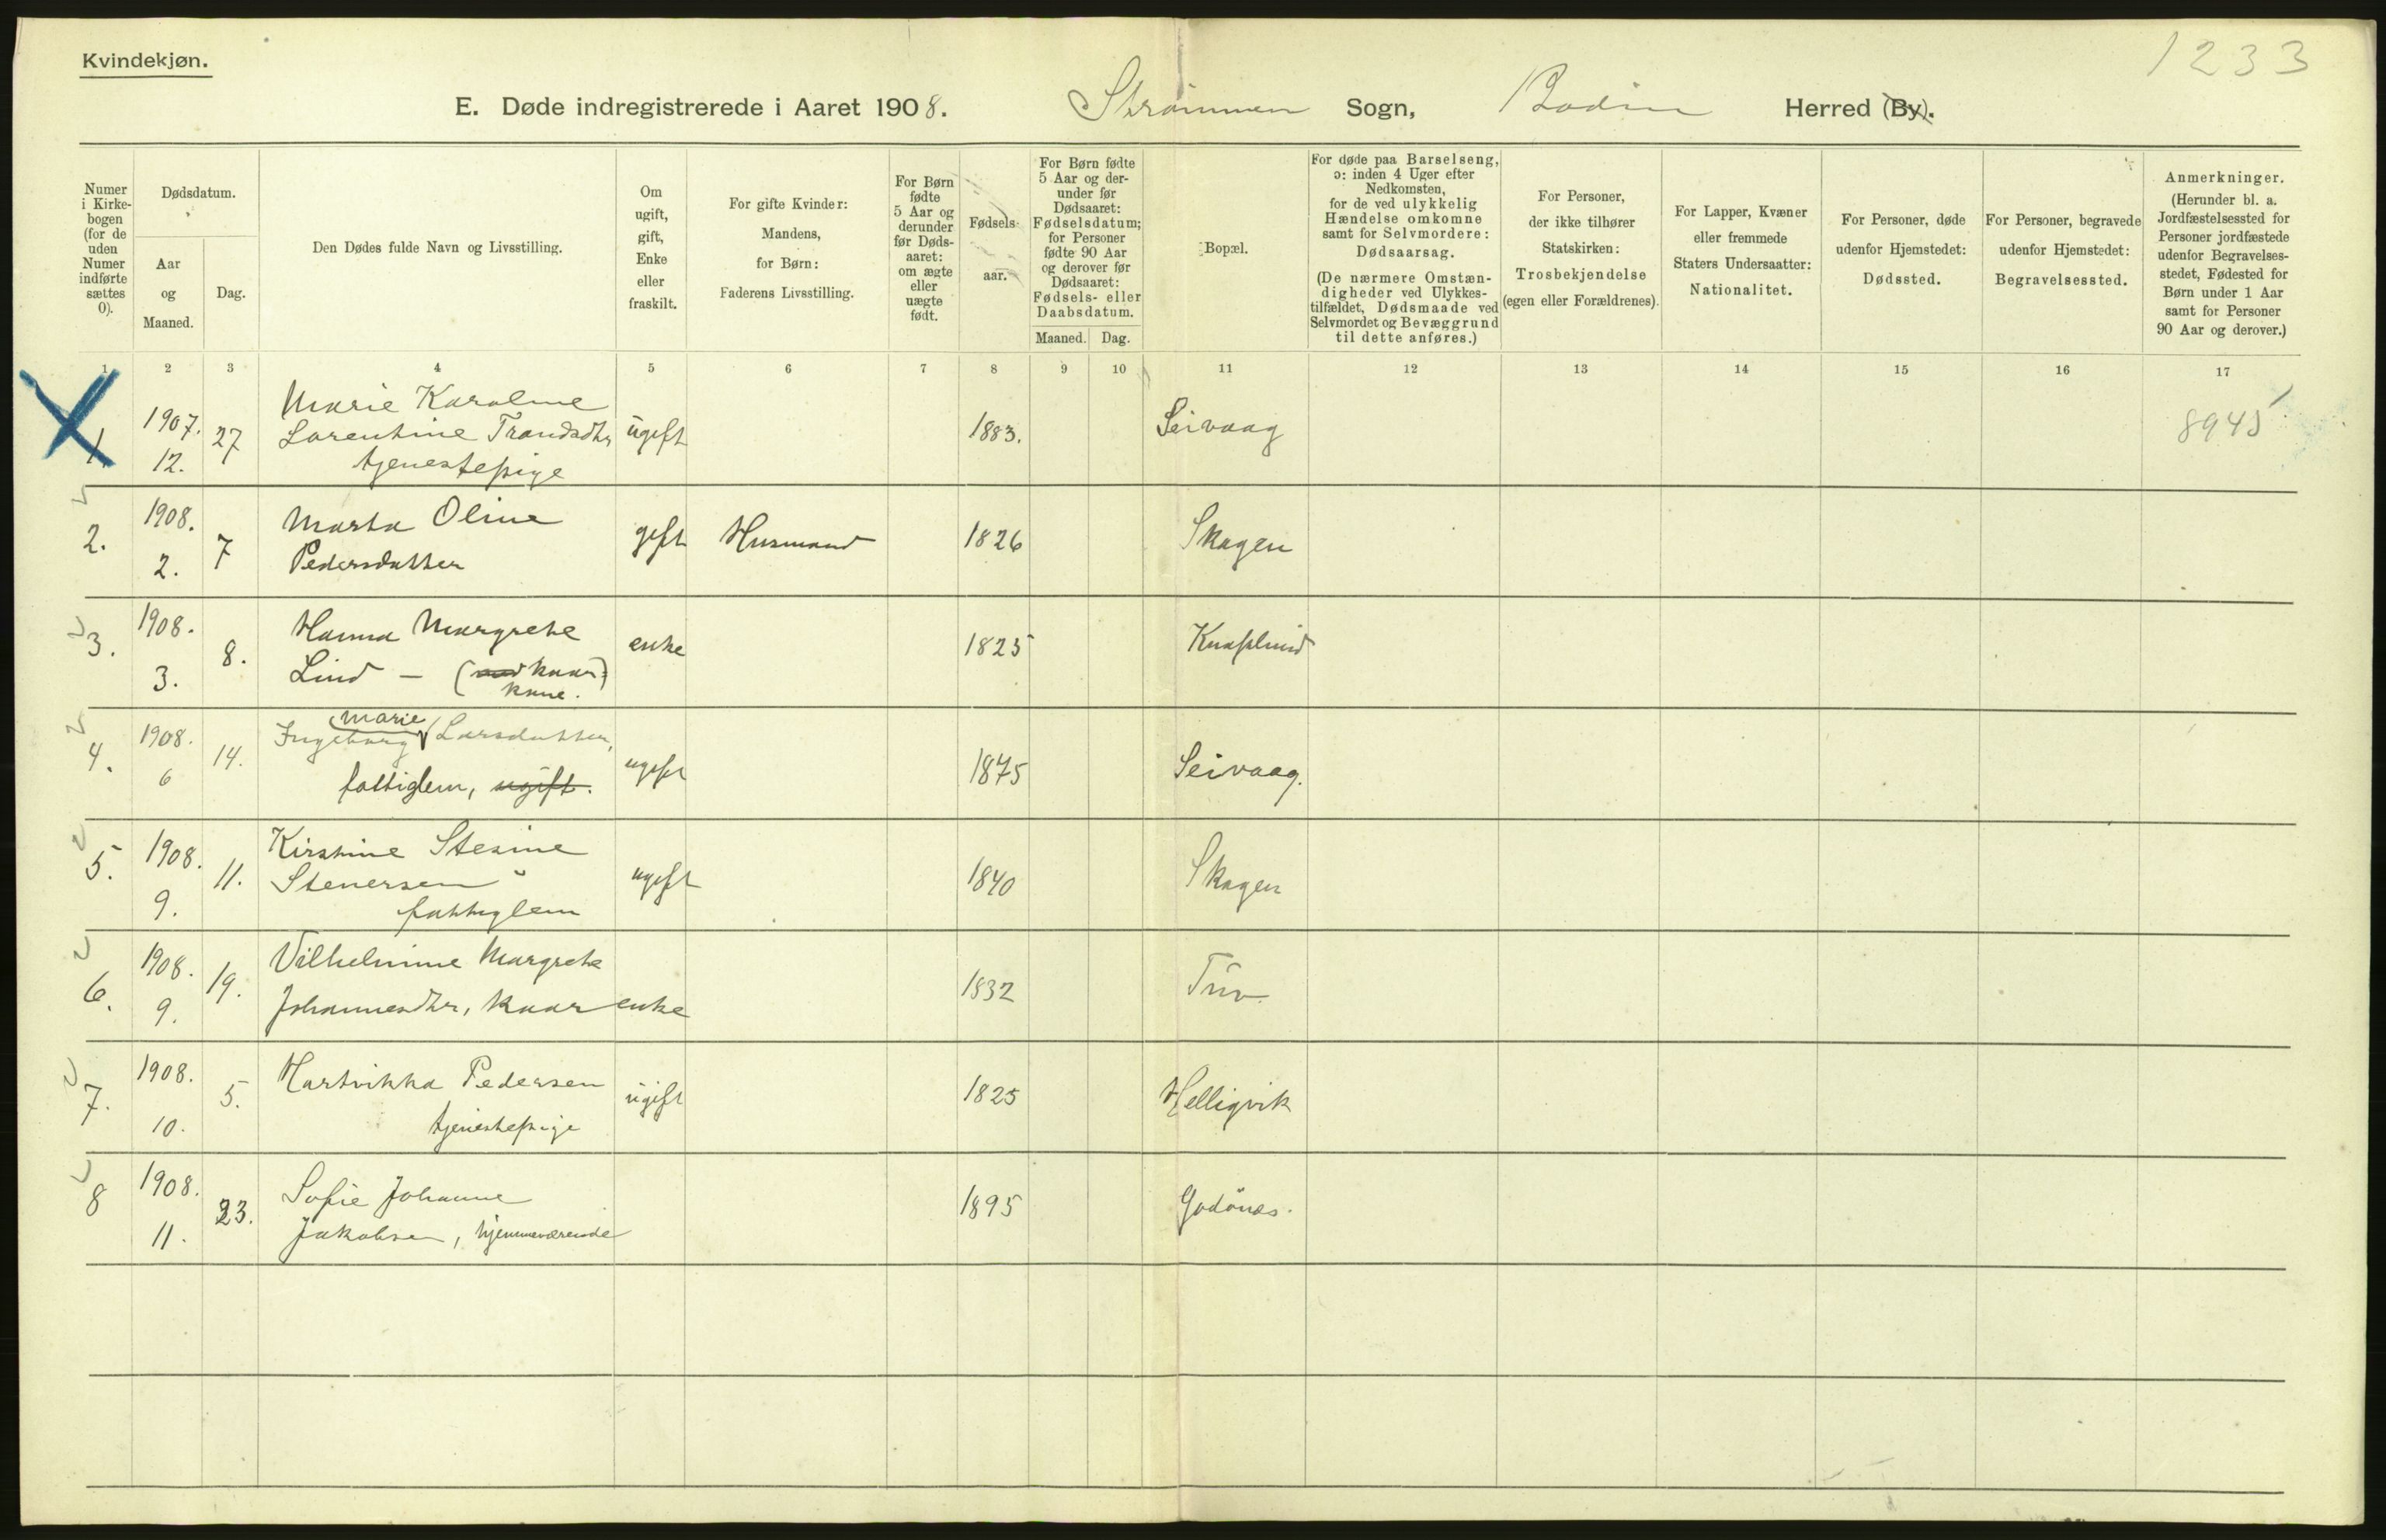 Kvindekjøn.
1233
E. Døde indregistrerede i Aaret 1908. Strømmen Sogn, Bodin Herred (By).
Numer i Kirkebogen (for de uden Numer indførte sættes 0).
Dødsdatum.
Aar og Maaned.
Dag.
Den Dødes fulde Navn og Livsstilling.
Om ugift, gift, Enke eller fraskilt.
For gifte Kvinder: Mandens, for Børn: Faderens Livsstilling.
For Børn fødte 5 Aar og derunder før Dødsaaret: om ægte eller uægte født.
Fødselsaar.
For Børn fødte 5 Aar og derunder før Dødsaaret: Fødselsdatum; for Personer fødte 90 Aar og derover før Dødsaaret: Fødsels- eller Daabsdatum.
Maaned. Dag.
Bopæl.
For døde paa Barselseng, ɔ: inden 4 Uger efter Nedkomsten, for de ved ulykkelig Hændelse omkomne samt for Selvmordere: Dødsaarsag.
(De nærmere Omstændigheder ved Ulykkestilfældet, Dødsmaade ved Selvmordet og Bevæggrund til dette anføres.)
For Personer, der ikke tilhører Statskirken: Trosbekjendelse (egen eller Forældrenes).
For Lapper, Kvæner eller fremmede Staters Undersaatter: Nationalitet.
For Personer, døde udenfor Hjemstedet: Dødssted.
For Personer, begravede udenfor Hjemstedet: Begravelsessted.
Anmerkninger.
(Herunder bl. a. Jordfæstelsessted for Personer jordfæstede udenfor Begravelsesstedet, Fødested for Børn under 1 Aar samt for Personer 90 Aar og derover.)
1 2 3 4 5 6 7 8 9 10 11 12 13 14 15 16 17
1. 1907. 12. 27 Marie Karoline
Lorentine Trondsdtr ugift 1883. Seivaag 8945
tjenestepige
2. 1908. 2. 7 Marta Oline
Pedersdatter gift Husmand 1826 Skagen
3. 1908. 3. 8. Hanna Margrete
Lind – (kaar) enke 1825 Knaplund
kone.
4. 1908. 6 14. Ingeborg Marie Larsdatter,
fattiglem, ugift. ugift 1875 Seivaag.
5. 1908. 9. 11. Kirstine Stesine
Stenersen ugift 1840 Skagen
fattiglem
6. 1908. 9. 19. Vilhelmine Margrete
Johannesdtr, kaar enke 1832 Tuv
7. 1908. 10. 5. Hartvikka Pedersen
tjenestepige ugift 1825 Helligvik
8 1908. 11. 23. Sofie Johanne
Jakobsen, hjemmeværende 1895 Godønes.